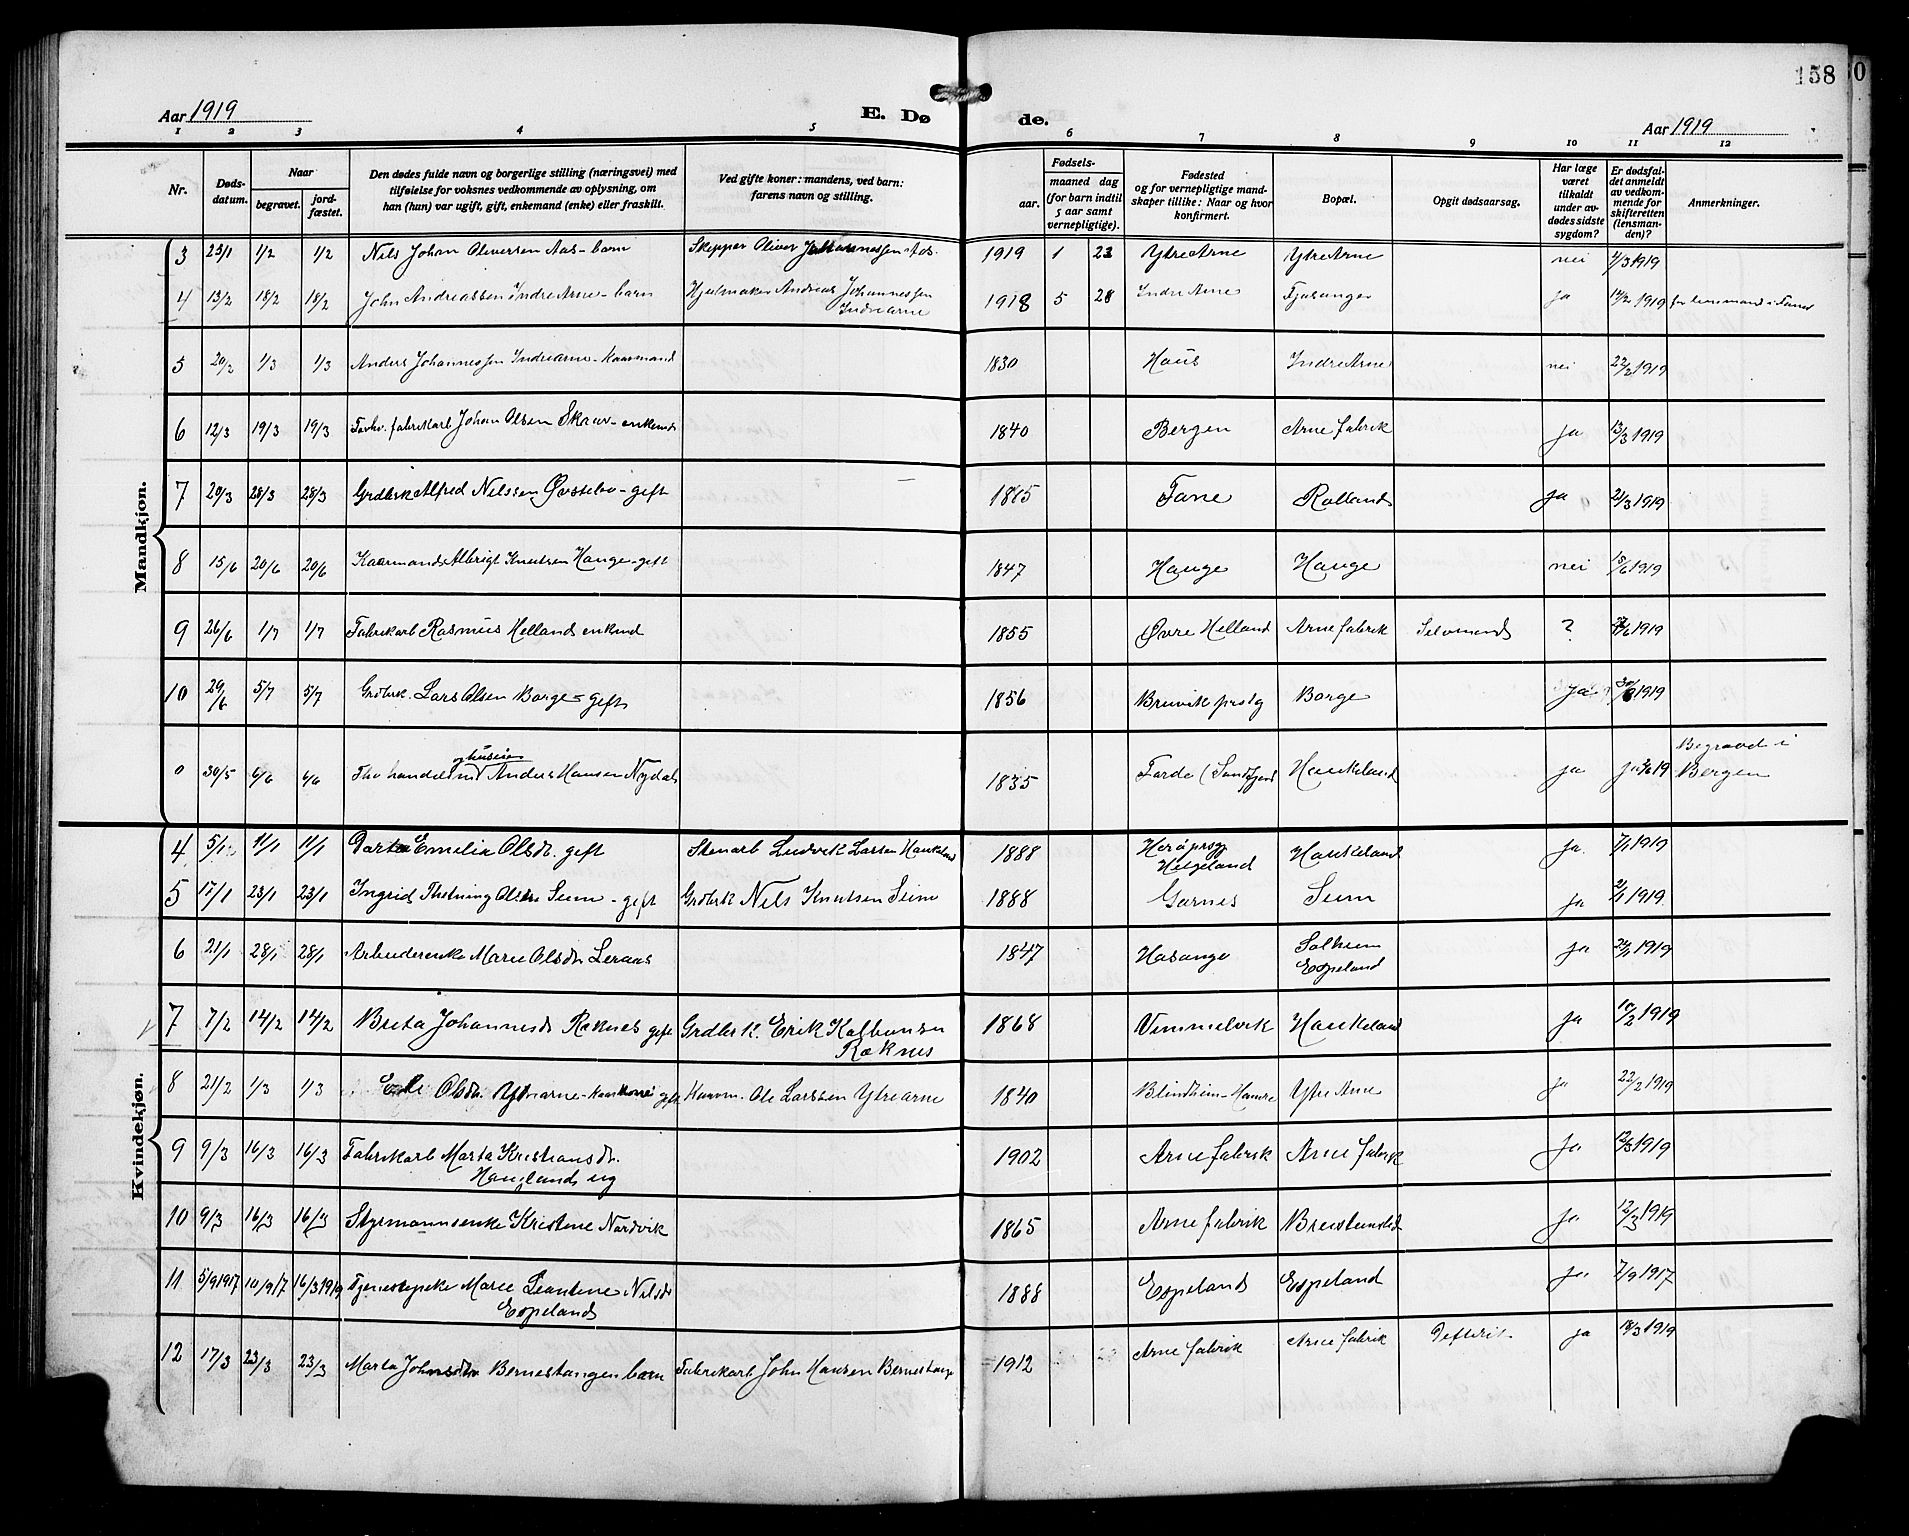 158
Aar 1919
E. Døde.
Aar 1919
1 2 3 4 5 6 7 8 9 10 11 12
Nr.
Døds-
datum.
Naar
begravet.
jord-
fæstet.
Den dødes fulde navn og borgerlige stilling (næringsvei) med
tilføielse for voksnes vedkommende av oplysning, om
han (hun) var ugift, gift, enkemand (enke) eller fraskilt.
Ved gifte koner: mandens, ved barn:
farens navn og stilling.
Fødsels-
aar.
maaned dag
(for barn indtil
5 aar samt
vernepligtige).
Fødested
og for vernepligtige mand-
skaper tillike: Naar og hvor
konfirmert.
Bopæl.
Opgit dødsaarsag.
Har læge
været
tilkaldt
under av-
dødes sidste
sygdom?
Er dødsfal-
det anmeldt
av vedkom-
mende for
skifteretten
(lensman-
den)?
Anmerkninger.
Mandkjøn.
3 25/1 1/2 1/2 Nils Johan Oliversen Aas - barn Skipper Oliver Johannessen Aas. 1919 1 23 Ytre Arne Ytre Arne nei 4/3 1919
4 13/2 18/2 18/2 John Andreassen Indre Arne - barn Hjulmaker Andreas Johannessen Indrearne 1918 5 28 Indre Arne Fjøsanger ja 14/2 1919 for lensmand i Fana
5 20/2 1/3 1/3 Anders Johannessen Indrearne - Kaarmand 1830 Haus Indre Arne nei 22/2 1919
6 12/3 19/3 19/3 Forhv. fabrikarb Johan Olsen Skauv - enkemd 1840 Bergen Arne fabrik ja 13/3 1919
7 20/3 28/3 28/3 Grdbrk Alfred Nilssen Øvstebø - gift 1875 Fane Rolland ja 21/3 1919
8 15/6 20/6 20/6 Kaarmand Albrigt Knutsen Hauge - gift 1847 Hauge Hauge nei 18/6 1919
9 26/6 1/7 1/7 Fabrikarb Rasmus Helland enkmd 1855 Øvre Helland Arne fabrik Selvmord ? 1919
10 29/6 5/7 5/7 Grdbrk. Lars Olsen Borge - gift 1856 Bruvik prstg Borge ja 30/6 1919
0 30/5 6/6 6/6 Fhv handelsmd og huseier Anders Hansen Nydal 1835 Førde (Sundfjord Haukeland ja ja 2/6 19 Begravet i Bergen
Kvindekjøn.
4 5/1 11/1 11/1 Dorte Emilie Olsdr. gift Stenarb Ludvik Larsen Haukeland 1888 Herø prsg Helgeland Haukeland ja 7/1 1919
5 17/1 23/1 23/1 Ingrid Olsdtr Seim - gift Grdbrk Nils Knutsen Seim 1888 Garnes Seim ja 1919
6 21/1 28/1 28/1 Arbeiderenke Marie Olsdtr Leraas 1847 Hosanger Solheim Espeland ja 24/1 1919
7 7/2 14/2 14/2 Brita Johannesdr Røknes gift Grdbrk. Erik Kolbensen Røknes 1868 Vimmelvik Haukeland ja 10/2 1919
8 21/2 1/3 1/3 Eli Olsdtr. Ytrearne - kaarkone gift Kaarm. Ole Larssen Ytrearne 1840 Blindheim - Hamre Ytre Arne ja 22/2 1919
9 9/3 16/3 16/3 Fabrikarb Marta Kristiansdr. Haugland ug 1902 Arne fabrik Arne fabrik ja. 12/3 1919
10 9/3 16/3 16/3 Styrmannsenke Kristine Nordvik 1865 Arne fabrik Breistensled ja 12/3 1919
11 5/9 1917 10/9 17 16/3 1919 Tjenestepike Marie Leantine Nilsdr Espeland 1888 Espeland Espeland ja. 7/9 1917
12 17/3 23/3 23/3 Marta Johnsdtr Bernestangen barn Fabrikarb John Hansen Bernestange 1912 Arne fabrik Arne fabrik Defterit ja 18/3 1919